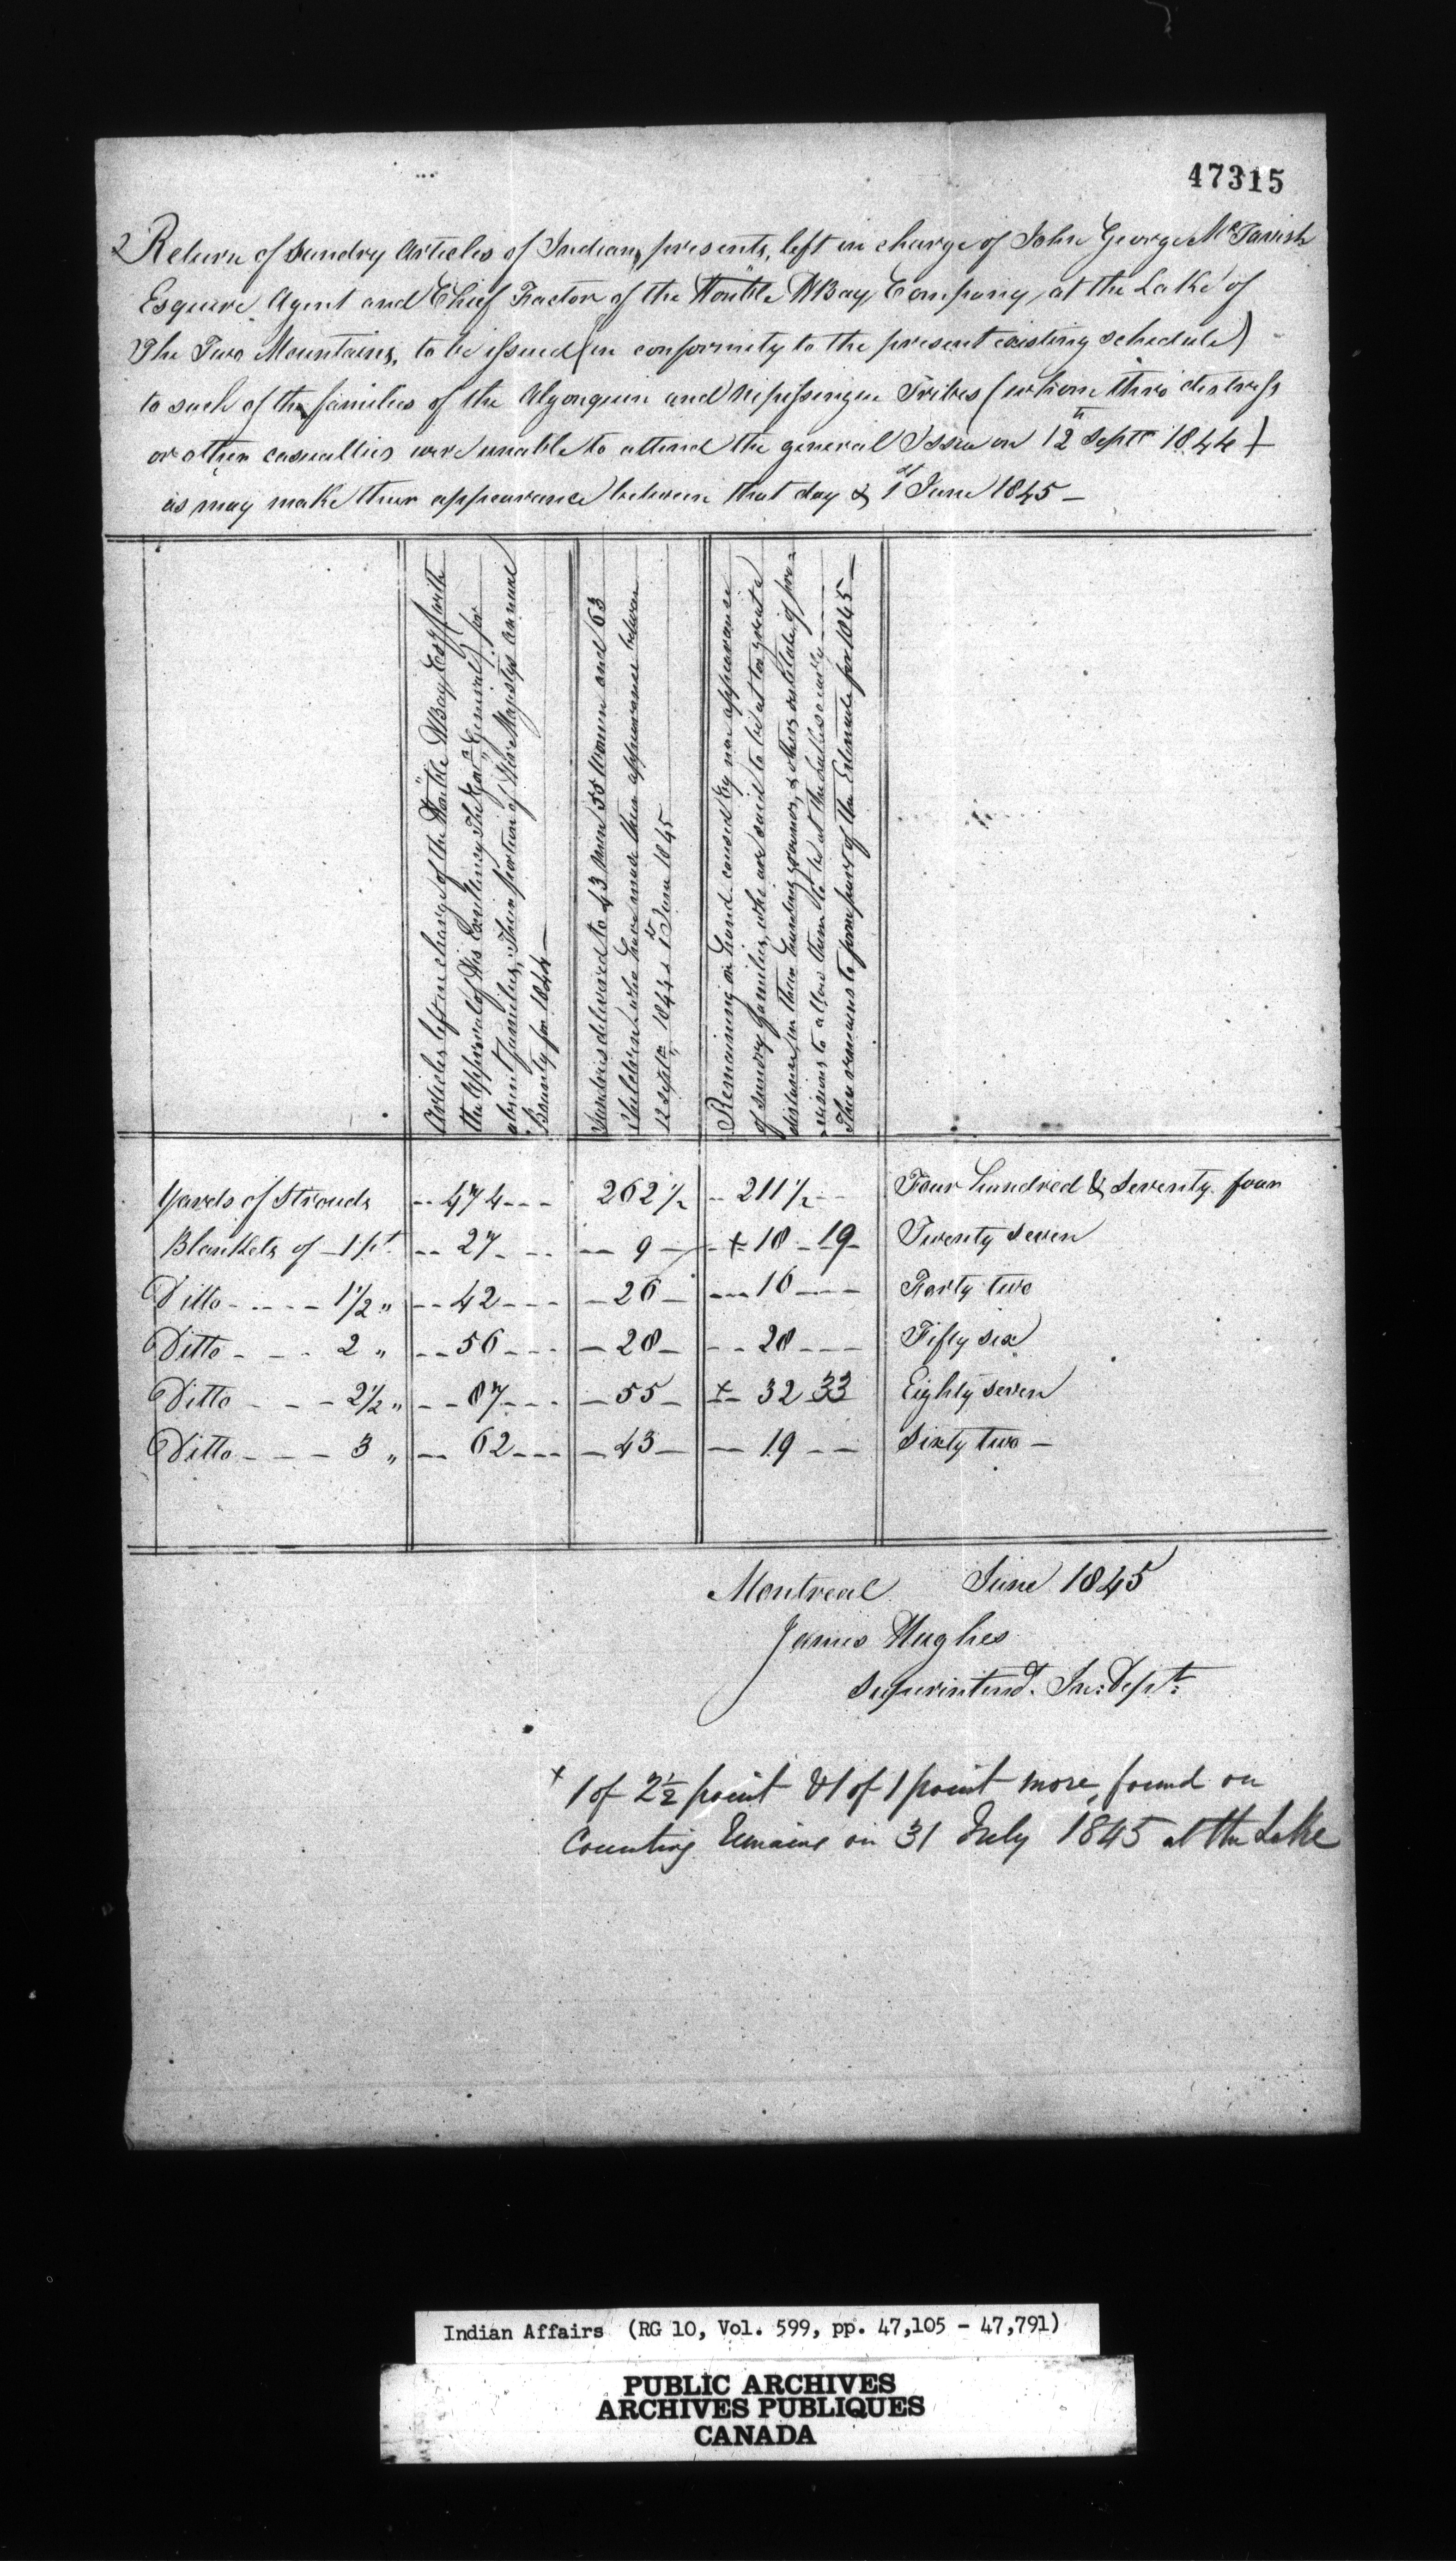 47315
2 Return of Sundry Articles of Indian presents, left in charge of John George McTavish
Esquire Agent and Chief Factor of the Honble HBay Company, at the Lake of
The Two Mountains, to be issued (in conformity to the present existing schedule)
to such of the families of the Algonquin and Nipissingue Tribes (whom thro' distress
or other casualties were unable to attend the general Issue on 12th Septr 1844)
as may make their appearance between that day & 1st June 1845 –
Articles left in charge of the Honble HBay Coy (with
the approval of His Excellency The Govr General) for
absent families; Their portion of Her Majestys Annual
Bounty for 1844 –
Sundries delivered to 43 Men 55 Women and 63
Children who have made their appearance between
12 Septr 1844 & 1st June 1845
Remaining on hand caused by non appearance
of sundry families, who are said to be at too great a
distance in their hunting grounds, & others destitute of pro=
visions to allow them to be at the Lake
These remains to form part of the Estimate for 1845 –
Yards of Strouds -- 474 --- 262 1/2 -- 211 1/2 -- Four hundred & Seventy four
Blankets of – 1 pt. -- 27 --- -- 9 -- + 18 - 19 - Twenty seven
Ditto ----- 1 1/2 " -- 42 --- – 26 – --- 16 --- Forty two
Ditto - - - 2 " -- 56 --- – 28 – -- 28 --- Fifty six
Ditto - - - 2 1/2 " -- 87 --- – 55 – + 32 33 Eighty seven
Ditto - - - 3 " -- 62 --- – 43 – -- 19 -- Sixty two –
Montreal June 1845
James Hughes
Superintendt. In: Dept:
+ 1 of 2 1/2 point & 1 of 1 point more, found on
Counting Remains on 31 July 1845 at the Lake
Indian Affairs (RG 10, Vol. 599, pp. 47,105 - 47,791)
PUBLIC ARCHIVES
ARCHIVES PUBLIQUES
CANADA